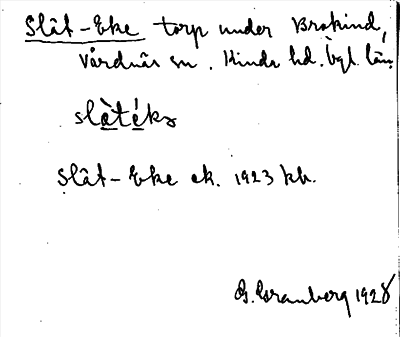 Slät-Eke torp under Brokind,
Vårdnäs sn. Kinds hd. Ögl. län.
slàtéka
Slät-Eke ek. 1923 kb.
G. Granberg 1928